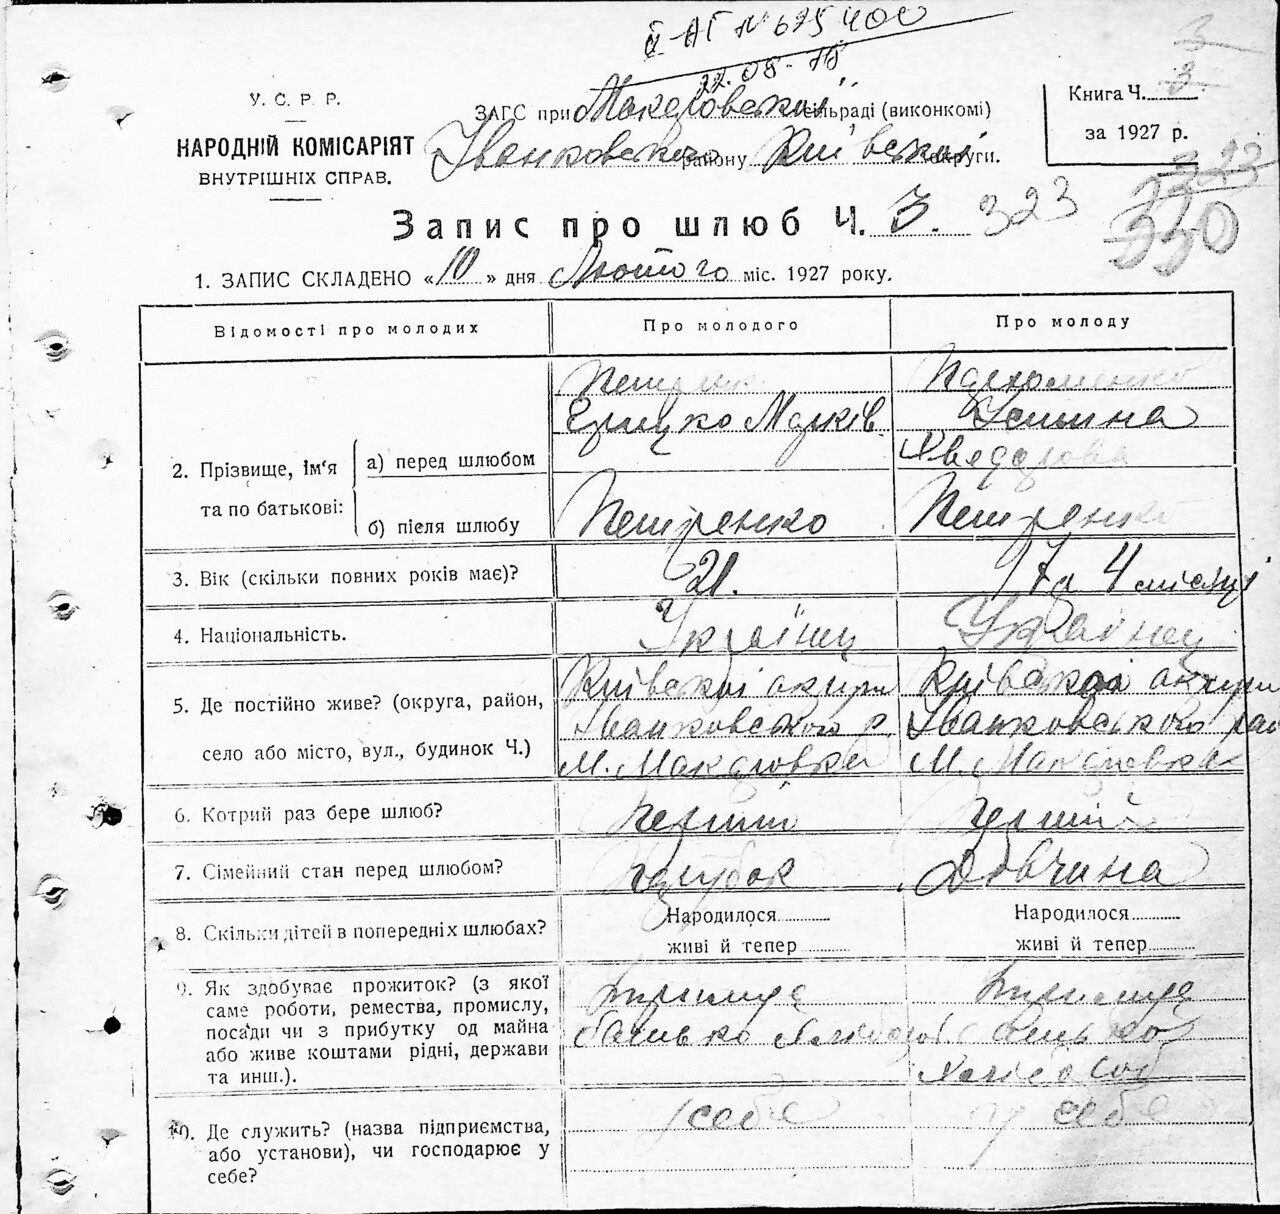 ІІ-АГ № 675400
22.08.78
У. С. Р. Р.
НАРОДНІЙ КОМІСАРІЯТ
ВНУТРІШНІХ СПРАВ.
ЗАГС при Макаровській сільраді (виконкомі)
Іванковского району Київскоі округи.
Книга Ч. 3
за 1927 р.
Запис про шлюб Ч. 3. 323
323
330
1. ЗАПИС СКЛАДЕНО «10» дня Лютого міс. 1927 року.
Відомості про молодих
Про молодого
Про молоду
2. Прізвище, ім'я
та по батькові:
а) перед шлюбом
Петренко
Грицко Марків
Пархоменко
Устина
Хведорова
б) після шлюбу
Петренко
Петренко
3. Вік (скільки повних років має)?
21.
17 та 4 місяці
4. Національність.
Українец
Українец
5. Де постійно живе? (округа, район,
село або місто, вул., будинок Ч.)
Київскоі округи
Іванковського р.
М. Макаровка
Київскоі округи
Іванковського рай
М. Макаровка
6. Котрий раз бере шлюб?
Перший
Перший
7. Сімейний стан перед шлюбом?
Парубок
Дівчина
8. Скільки дітей в попередніх шлюбах?
Народилося
живі й тепер
Народилося
живі й тепер
9. Як здобуває прожиток? (з якої
саме роботи, ремества, промислу,
посади чи з прибутку од майна
або живе коштами рідні, держави
та инш.).
батько
батько
10. Де служить? (назва підприємства,
або установи), чи господарює у
себе?
у себе
у себе